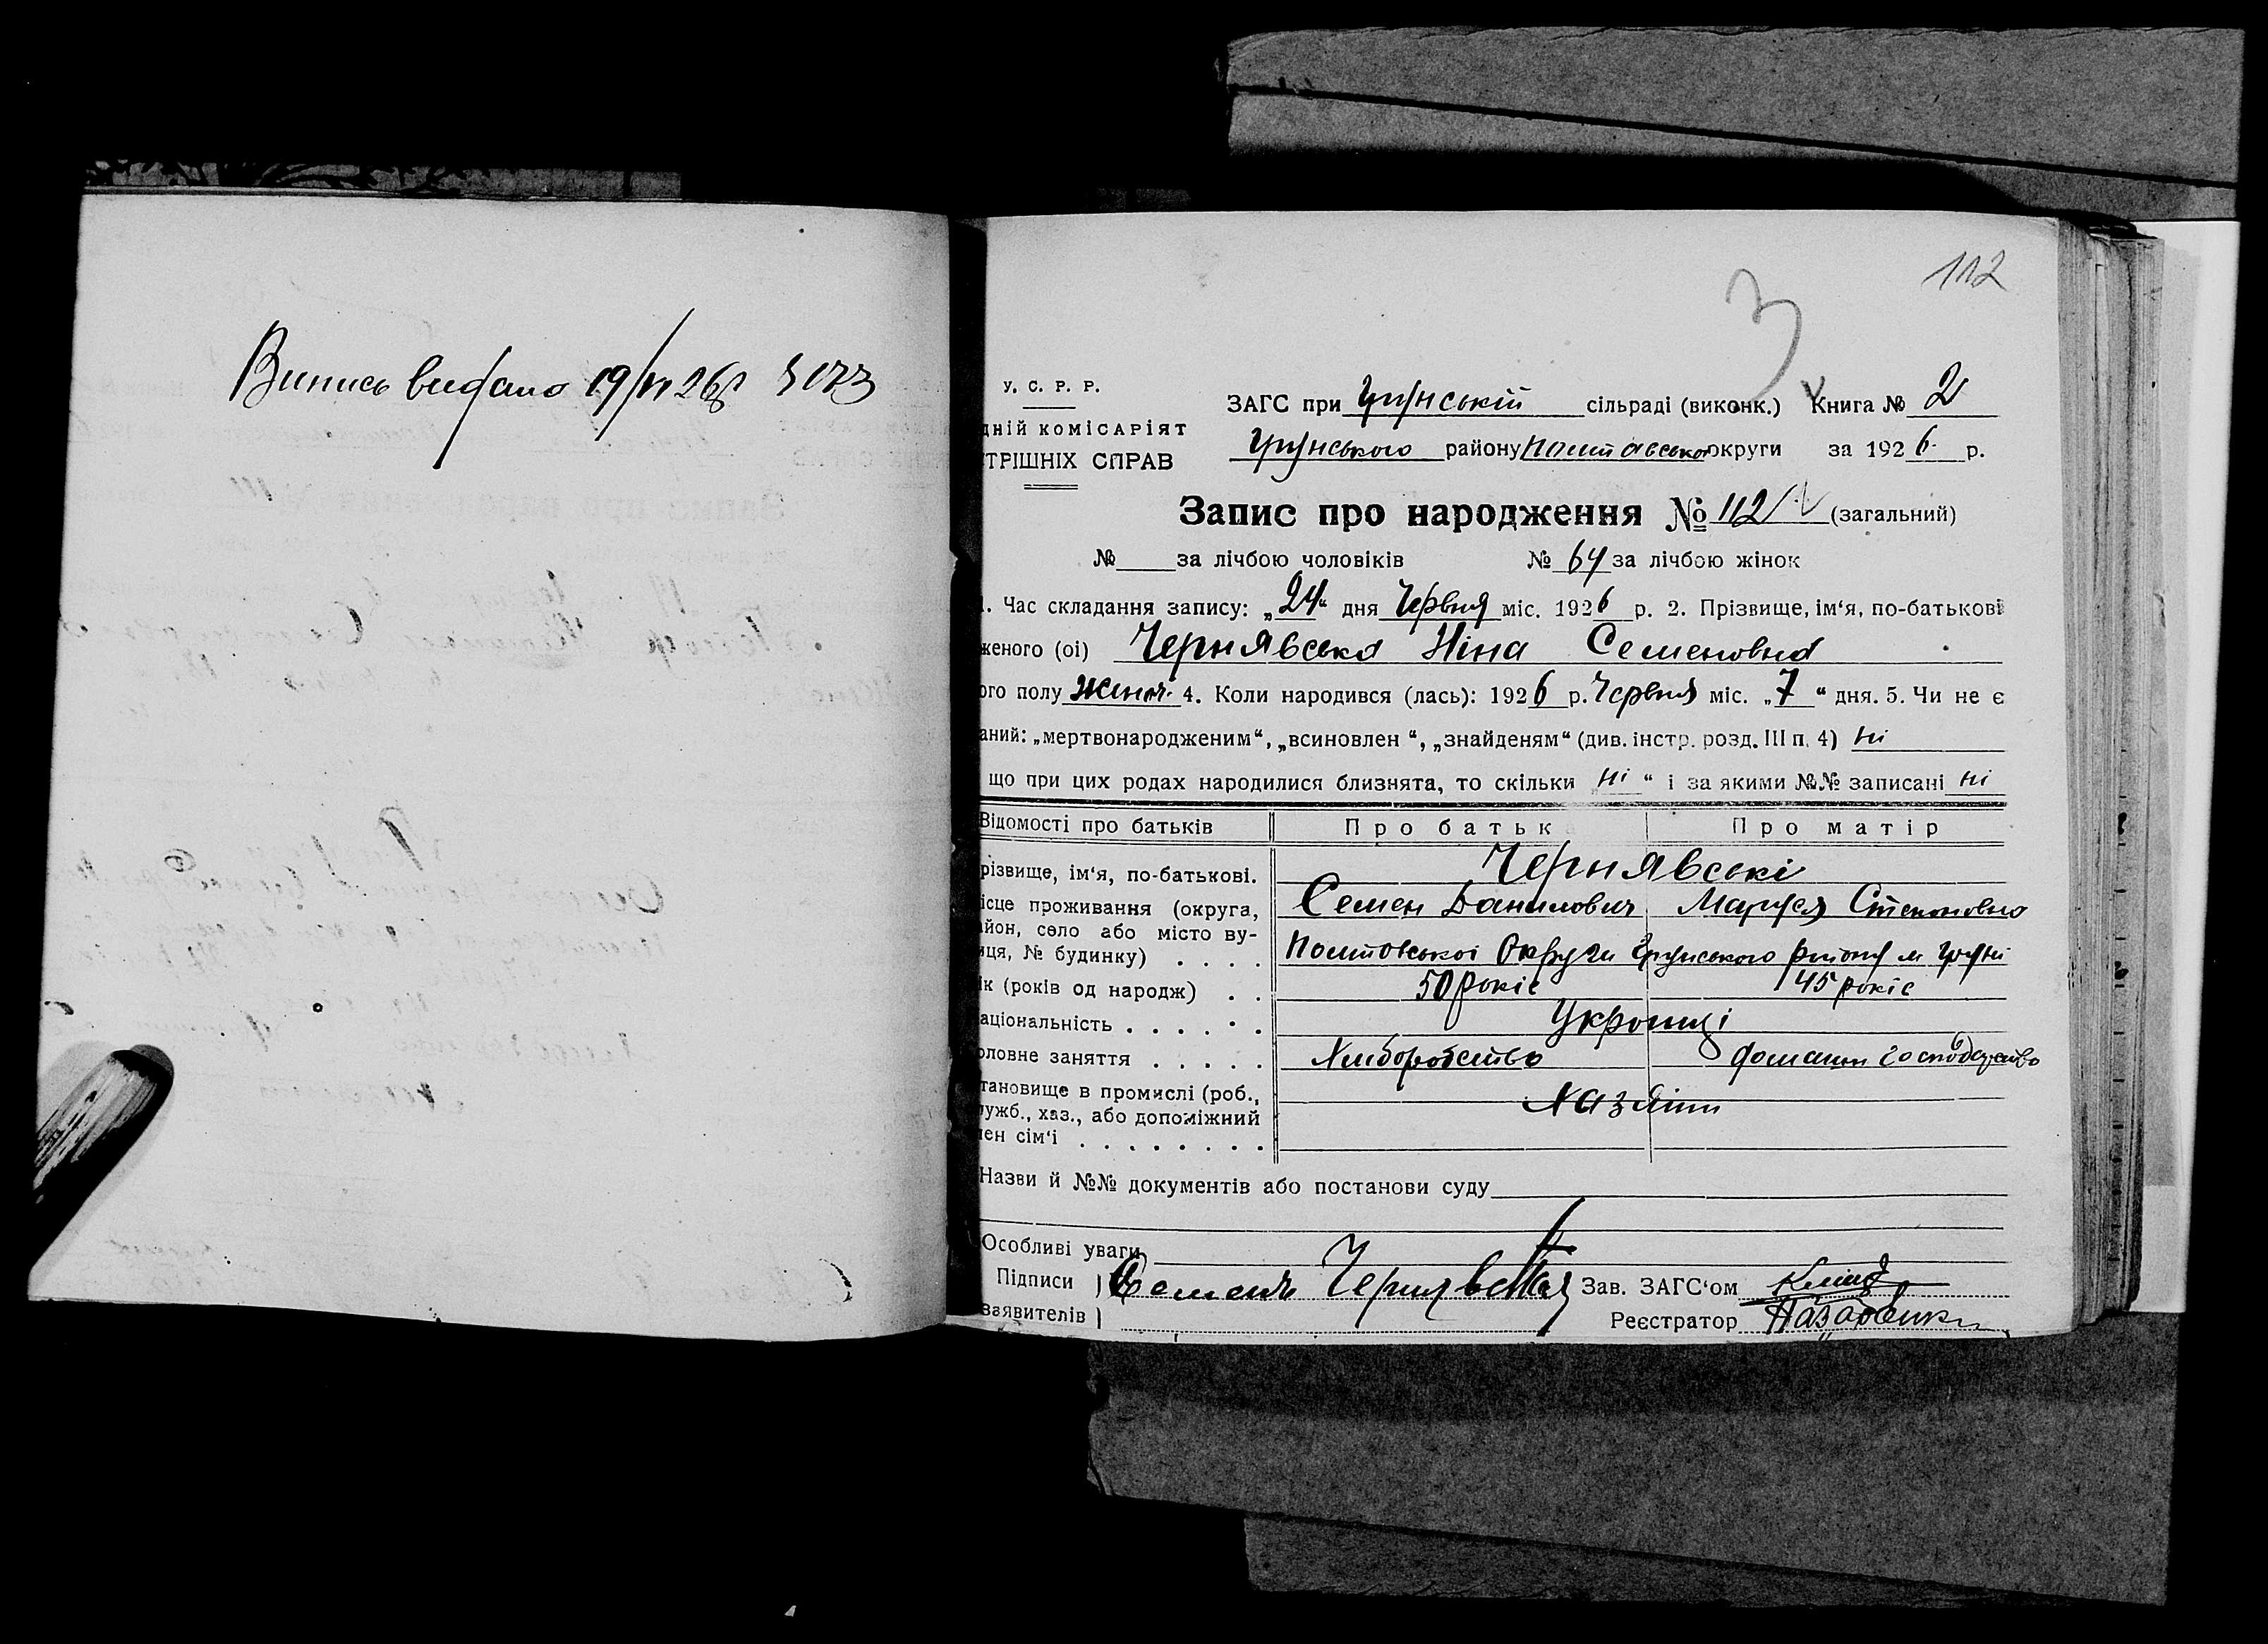 Випись видано 19/VI 26р 3073
112
3
У. С. Р. Р.
дній комісаріят
трішніх справ
ЗАГС при Грунській сільраді (виконк.) Книга № 2
Грунського району Полтавської округи за 1926 р.
Запис про народження № 112 (загальний)
№ за лічбою чоловіків № 64 за лічбою жінок
1. Час складання запису: „24“ дня Червня міс. 1926 р. 2. Прізвище, ім‘я, по-батькові
женого (ої) Чернявська Ніна Семеновна
ого полу женоч. 4. Коли народився (лась): 1926 р. Червня міс. „7“ дня. 5. Чи не є
аний: „мертвонародженим“, „всиновлен “, „знайденям“ (див. інстр. розд. III п. 4) ні
що при цих родах народилися близнята, то скільки „ні“ і за якими №№ записані ні
Відомості про батьків Про батьк Про матір
різвище, ім‘я, по-батькові. Чернявські
ісце проживання (округа, Семен Данилович Маруся Степановна
айон, село або місто ву-
иця, № будинку) . . . . Полтавської Округи Грунського району м Груні
ік (років од народж) . . 50 років 45 років
аціональність . . . . . . Українці
оловне заняття . . . . . Хліборобство домашн господарство
тановище в промислі (роб., Хазяїни
ужб., хаз., або допоміжний
лен сім‘ї . . . . . . . .
Назви й №№ документів або постанови суду
Особливі уваги
Підписи Семен Чернявский Зав. ЗАГС‘ом
заявителів Реєстратор Назаренко